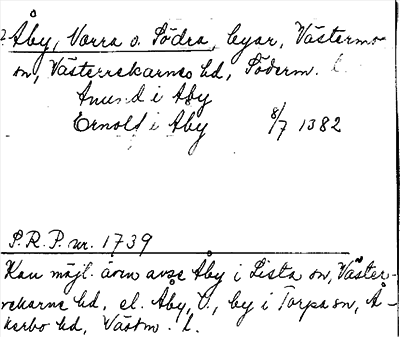 Åby, Norra o. Södra, byar, Västermo
sn, Västerrekarnes hd, Söderm. l.
Anund i Aby
Ernold i Aby 8/7 1382
S.R.P. nr. 1739
Kan möjl. även avse Åby i Lista sn, Väster-
rekarne hd, el. Åby, Ö., by i Torpa sn, Å-
kerbo hd, Västm. l.